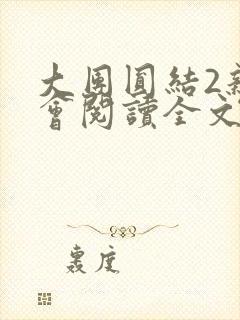 大團圓結2新
會閱讀全文
裏度